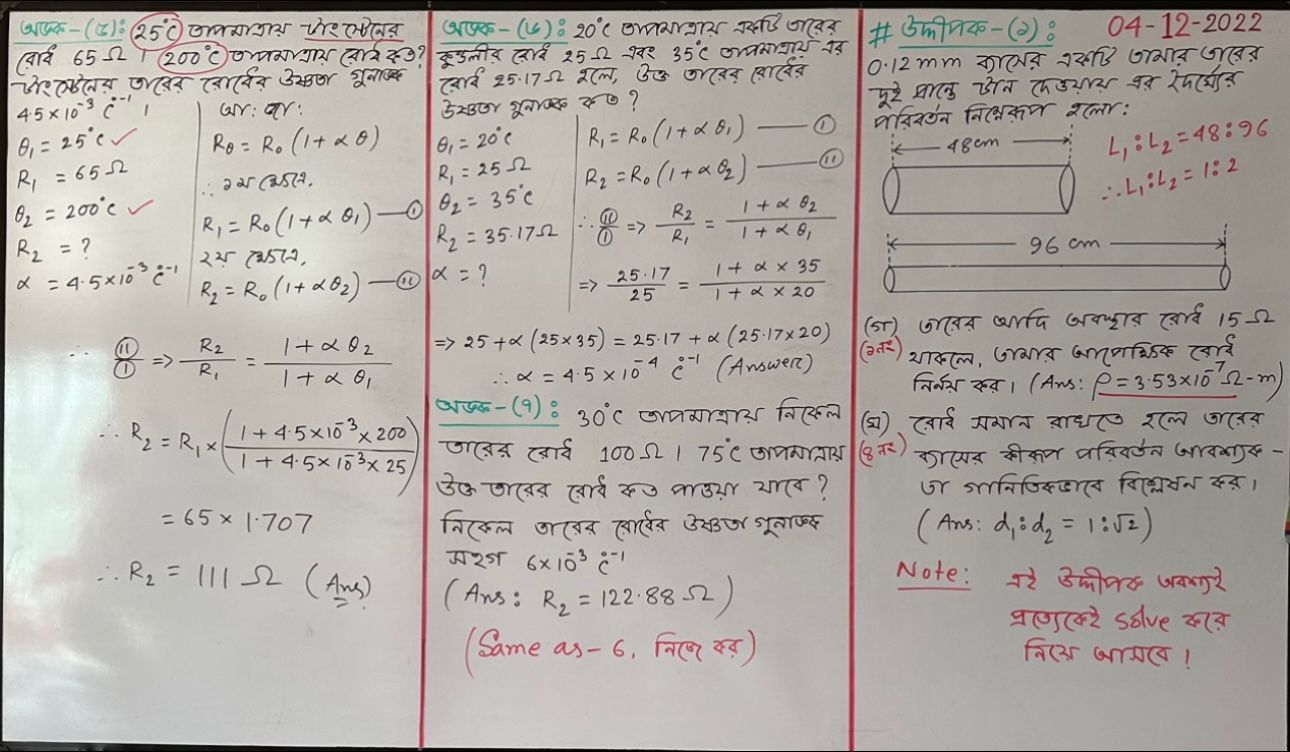 অঙ্ক-(৫): 25°C তাপমাত্রায় টাংস্টেনের
রোধ 65 Ω । 200°C তাপমাত্রায় রোধ কত?
টাংস্টেনের তারের রোধের উষ্ণতা গুনাঙ্ক
4.5×10⁻³ °C⁻¹ ।
θ₁ = 25°C ✓
R₁ = 65Ω
θ₂ = 200°C ✓
R₂ = ?
α = 4.5×10⁻³ °C⁻¹
আ: জা:
Rθ = R₀ (1+αθ)
∴ ১ম ক্ষেত্রে,
R₁ = R₀ (1+α θ₁) — (i)
২য় ক্ষেত্রে,
R₂ = R₀ (1+αθ₂) — (ii)
∴ (ii)/(i) => R₂/R₁ = (1+αθ₂)/(1+αθ₁)
∴ R₂ = R₁ × ((1+4.5×10⁻³×200)/(1+4.5×10⁻³×25))
= 65 × 1.707
∴ R₂ = 111 Ω (Ans)
অঙ্ক-(৬): 20°C তাপমাত্রায় একটি তারের
কুন্ডলীর রোধ 25 Ω এবং 35°C তাপমাত্রায় এর
রোধ 25.17Ω হলে, উক্ত তারের রোধের
উষ্ণতা গুনাঙ্ক কত ?
θ₁ = 20°C
R₁ = 25 Ω
θ₂ = 35°C
R₂ = 35.17Ω
α = ?
R₁ = R₀ (1+αθ₁) — (i)
R₂ = R₀ (1+αθ₂) — (ii)
∴ (ii)/(i) => R₂/R₁ = (1+αθ₂)/(1+αθ₁)
=> 25.17/25 = (1+α×35)/(1+α×20)
=> 25+α(25×35) = 25.17+α(25.17×20)
∴ α = 4.5×10⁻⁴ °C⁻¹ (Answer)
অঙ্ক-(৭): 30°C তাপমাত্রায় নিকেল
তারের রোধ 100Ω । 75°C তাপমাত্রায়
উক্ত তারের রোধ কত পাওয়া যাবে ?
নিকেল তারের রোধের উষ্ণতা গুনাঙ্ক
সহগ 6×10⁻³ °C⁻¹
(Ans: R₂ = 122.88 Ω)
(Same as-6, নিজে কর)
# উদ্দীপক-(১): 04-12-2022
0.12mm ব্যাসের একটি তামার তারের
দুই প্রান্তে টান দেওয়ায় এর দৈর্ঘ্যের
পরিবর্তন নিম্নরূপ হলো:
48cm
L₁:L₂ = 48:96
∴ L₁:L₂ = 1:2
96 cm
(গ) তারের আদি অবস্থার রোধ 15Ω
(৩নং) থাকলে, তামার আপেক্ষিক রোধ
নির্নয় কর। (Ans: ρ=3.53×10⁻⁷Ω-m)
(ঘ) রোধ সমান রাখতে হলে তারের
(৪নং) ব্যাসের কীরূপ পরিবর্তন আবশ্যক-
তা গানিতিকভাবে বিশ্লেষন কর।
(Ans: d₁:d₂ = 1:√2)
Note: এই উদ্দীপক অবশ্যই
প্রত্যেকেই solve করে
নিয়ে আসবে !